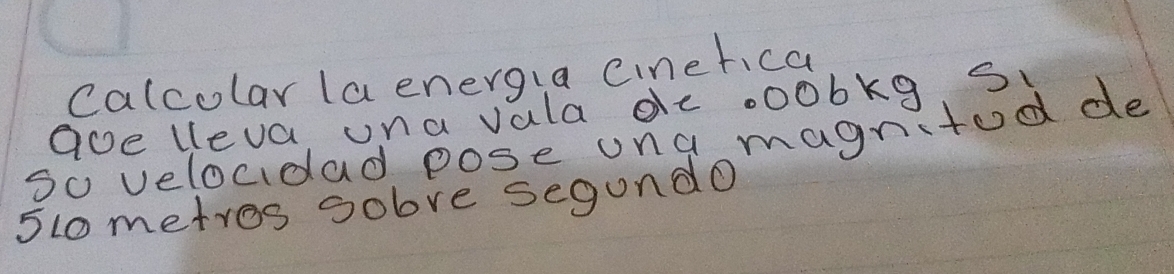 Calcular la energia cinetica
que lleva una vala de .006kg si
su velocidad pose una magnitud de
510 metros sobre segundo